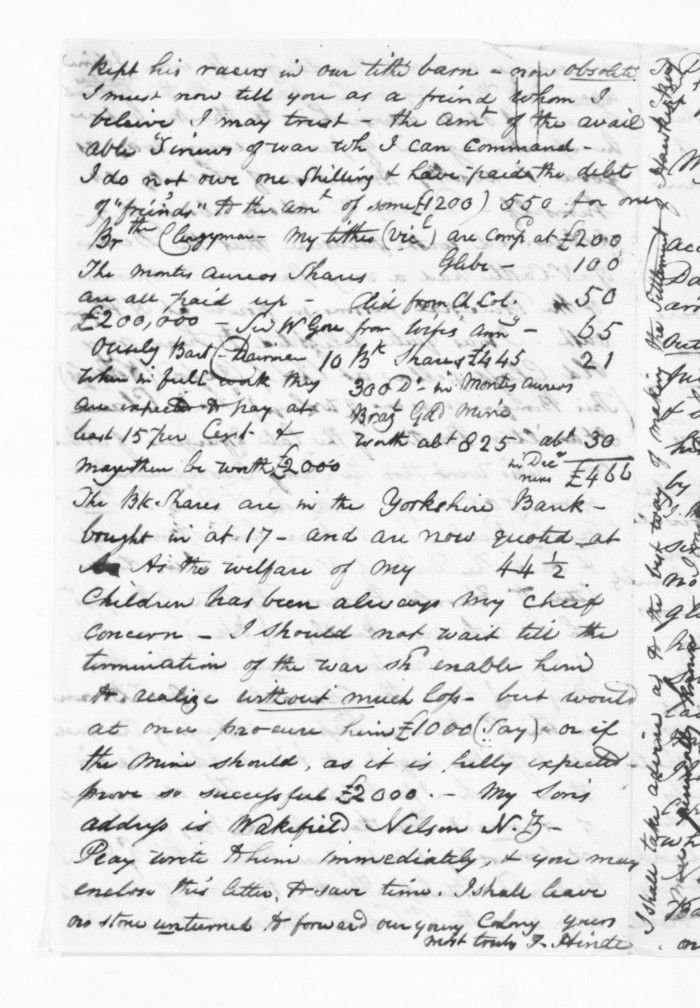 kept his racers in our tithe barn - now obsolete
I must now tell you as a friend whom I
beleive I may trust - the amt of the avail
able "Sinews of war wh I can command -
I do not owe one Shilling & have paid the debts
of "friends" to the amt of some £1200) 550 for one
Br the Clergyman - My tithes (Vicl) are comp. at £200
Glebe - 100
The Montes aureos Shares
are all paid up - Aid from Q. Col. 50
£200,000 - Sir W Gore from
Ousely Bart - Chairman
65
10 Bk Shares £445 21
When in full work they
300 Do in Montes aureos
are expected to pay at
Brazl Gold Mine
least 15 per Cent &
worth abt 825 abt 30
may then be worth £2000
in Decr
next £466
The Bk Shares are in the Yorkshire Bank -
bought in at 17 - and are now quoted at
As the welfare of my 44 1/2
Children has been always my cheif
concern - I should not wait till the
termination of the war sh enable him
to realize without much loss - but would
at once procure him £1000 (say) or if
the Mine should, as it is fully expected
prove so successful £2000. - My Sons
address is Wakefield Nelson N.Z -
Pray write to him immediately, & you may
enclose this letter, to save time. I shall leave
no stone unturned to forward our young Colony yours
most truly T. Hinde
I shall take advice as to the best way of making the Settlement